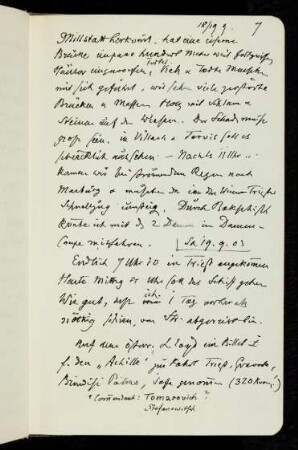 18/19 9. 7
Millstatt herkommt, hat eine eiserne
Brücke ... hundert Meter weit fortgerissen
Häuser umgeworfen, Vieh u Todte Menschen
mit sich geführt, wir sehen viele zerstörte
Brücken u Massen Holz mit Schlamm u
Steinen auf den Wiesen. Der Schaden muss
gross sein, in Villach u Tarvis soll es
schrecklich aussehen. – Nachts 11 Uhr
kamen wir bei strömendem Regen nach
Marburg u mussten da in den Wien-Triest
Schnellzug einsteigen. Durch
konnte ich mit den 2 Damen im Damen-
Coupe mitfahren. Sa 19.9.03
Endlich 7 Uhr 10 in Triest angekommen
Heute Mittag 12 Uhr soll das Schiff gehen
Wie gut, dass ich 1 Tag vorher als
nöthig schien, von Str. abgereist bin.
Auf dem österr. Lloyd ein Billet I
f. den „Achille" zur Fahrt Triest, Gravosa,
Brindisi Patras, habe genommen (320 Kron.)
* Commandant: Tomasovich